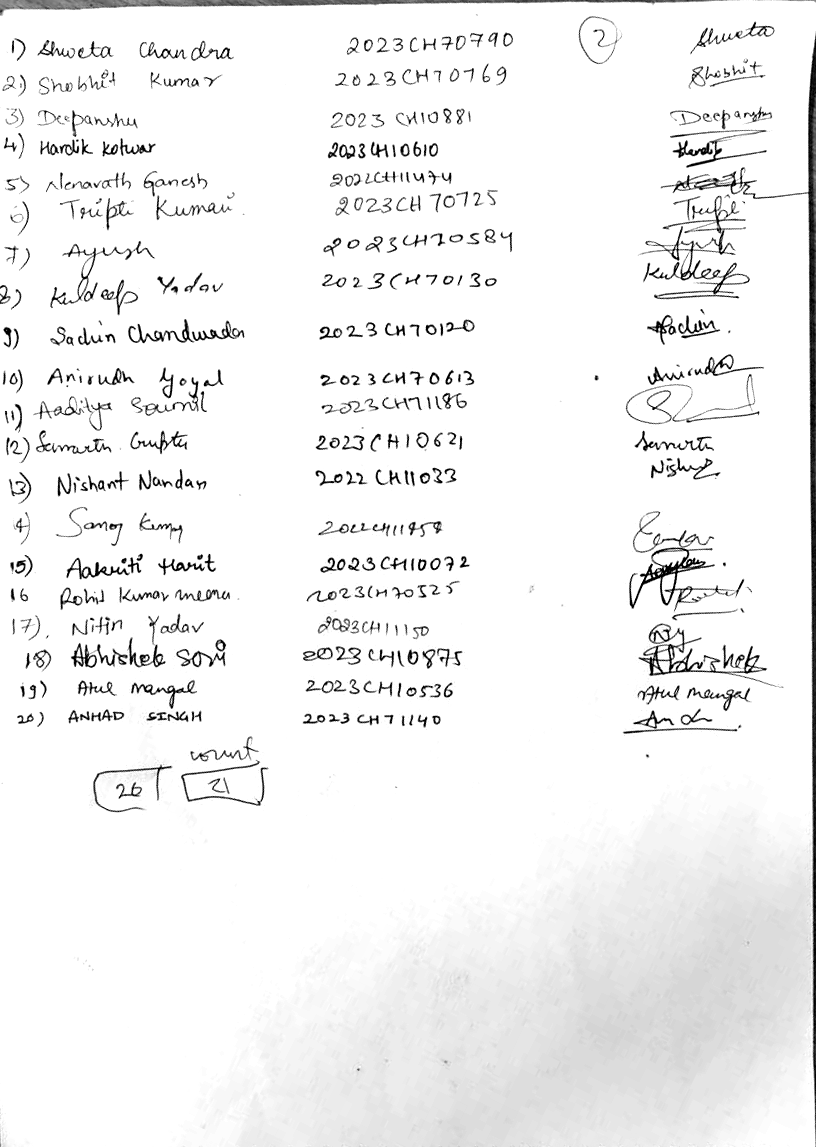 1) Shweta Chandra 2023CH70790 2 Shweta
2) Shobhit Kumar 2023CH70769 Shobhit
3) Deepanshu 2023 CH10881 Deepanshu
4) Hardik Kotwar 2023CH10610 Hardik
5) Nenavath Ganesh 2022CH11474
6) Tripti Kumari 2023CH70725 Tripti
7) Ayush 2023CH70584 Ayush
8) Kuldeep Yadav 2023CH70130 Kuldeep
9) Sachin Chandwadar 2023CH70120 Sachin
10) Anirudh Goyal 2023CH70613 Anirudh
11) Aaditya Saumil 2023CH71186
12) Samarth Gupta 2023CH10621 Samarth
13) Nishant Nandan 2022CH11033
4) 
15) Aakriti Harit 2023CH10072
16 Rohit Kumar meena 2023CH70525
17). Nitin Yadav 2023CH11150
18) Abhishek SONI 2023CH10875 Abhishek
19) Atul Mangal 2023CH10536 Atul Mangal
20) ANHAD SINGH 2023CH71140
count
26 21